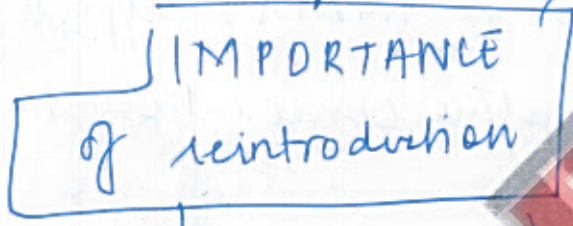 IMPORTANCE
of reintroduction